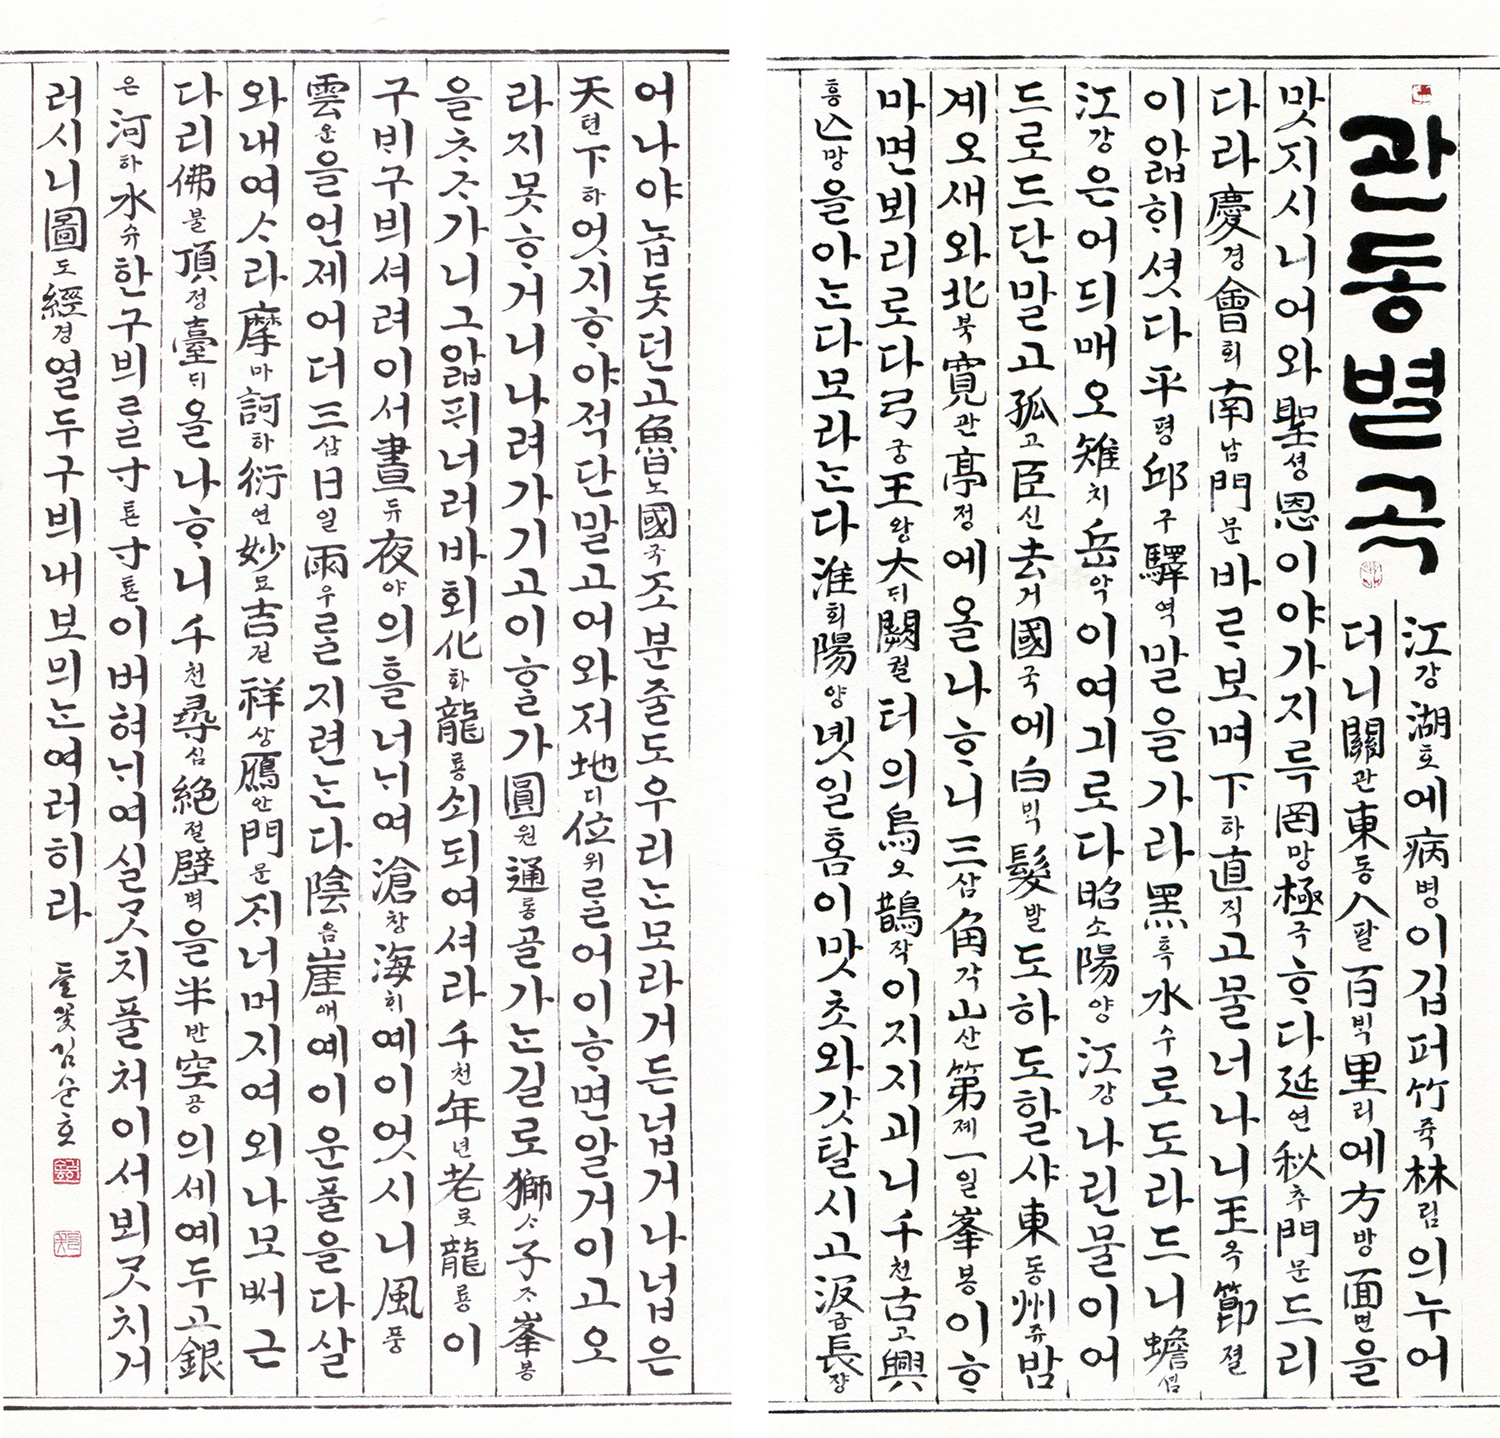 관동별곡
江강湖호에病병이깁퍼竹쥭林림의누어
더니關관東동八팔百빅里리에方방面면을
맛지시니어와聖셩恩이야가지륵罔망極극ᄒᆞ다延연秋추門문드리
다라慶경會회南남門문바ᄅᆞ보며下하直직고물너나니玉옥節졀
이앏ᄒᆡ셧다平평邱구驛역말을가라黑흑水수로도라드니蟾셤
江강은어듸매오雉치岳악이여긔로다昭소陽양江강나린물이어
드로드단말고孤고臣신去거國국에白빅髮발도하도할샤東동州쥬밤
계오새와北북寬관亭정에올나ᄒᆞ니三삼角각山산第제一일峯봉이ᄒᆞ
마면뵈리로다弓궁王왕大ᄃᆡ闕궐터의烏오鵲작이지지괴니千천古고興
흥亡망을아ᄂᆞᆫ다모라ᄂᆞᆫ다淮회陽양녯일홈이맛초와갓탈시고汲급長쟝
어나야놉돗던고魯노國국조분줄도우리ᄂᆞᆫ모라거든넙거나넙은
天텬下하엇지ᄒᆞ야적단말고어와저地디位위ᄅᆞᆯ어이ᄒᆞ면알거이고오
라지못ᄒᆞ거니나려가기고이ᄒᆞᆯ가圓원通통골가ᄂᆞᆫ길로獅ᄉᆞ子ᄌᆞ峯봉
을ᄎᆞᄌᆞ가니그앏ᄑᆡ너러바회化화龍룡쇠되여셔라千천年년老로龍룡이
구ᄇᆡ구븨셔려이서晝듀夜야의흘너ᄂᆡ여滄창海ᄒᆡ예이엇시니風풍
雲운을언제어더三삼日일雨우ᄅᆞᆯ지련ᄂᆞᆫ다陰음崖애예이운풀을다살
와내여ᄉᆞ라摩마訶하衍연妙묘吉길祥상雁안門문ᄌᆡ너머지여외나모뻐근
다리佛불頂정臺ᄃᆡ올나ᄒᆞ니千천尋심絶절壁벽을半반空공의세예두고銀
은河하水슈한구븨ᄅᆞᆯ寸촌寸촌이버혀ᄂᆡ여실ᄀᆞᆺ치풀쳐이서뵈ᄀᆞᆺ치거
러시니圖도經경열두구븨내보믜ᄂᆞᆫ여러히라 들꽃김순호